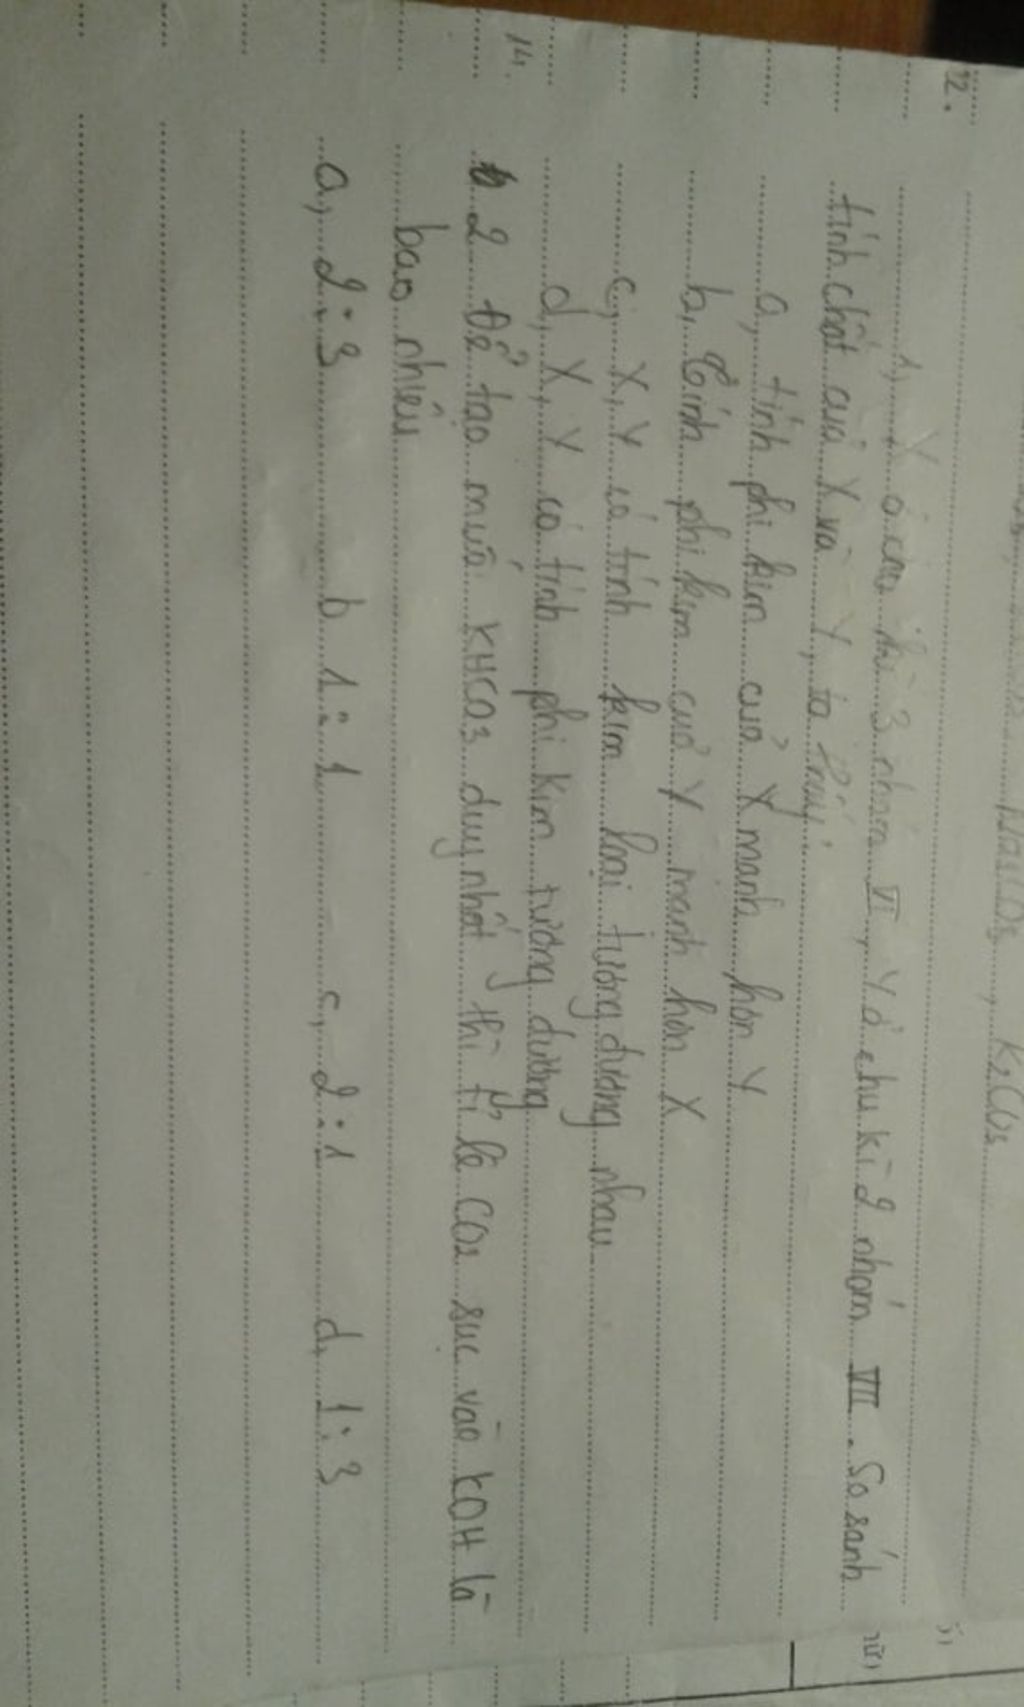 Na2CO3, K2CO3
12.
1, X ở chu kì 3 nhóm VI, Y ở chu kì 2 nhóm VII. So sánh
tính chất của X và Y, ta thấy:
a, tính phi kim của X mạnh hơn Y
b, Tính phi kim của Y mạnh hơn X
c, X, Y có tính kim loại tương đương nhau
d, X, Y có tính phi kim tương đương
14.
2 Để tạo muối KHCO3 duy nhất thì tỉ lệ CO2 sục vào KOH là
bao nhiêu
a, 2:3 b 1:1 c, 2:1 d, 1:3